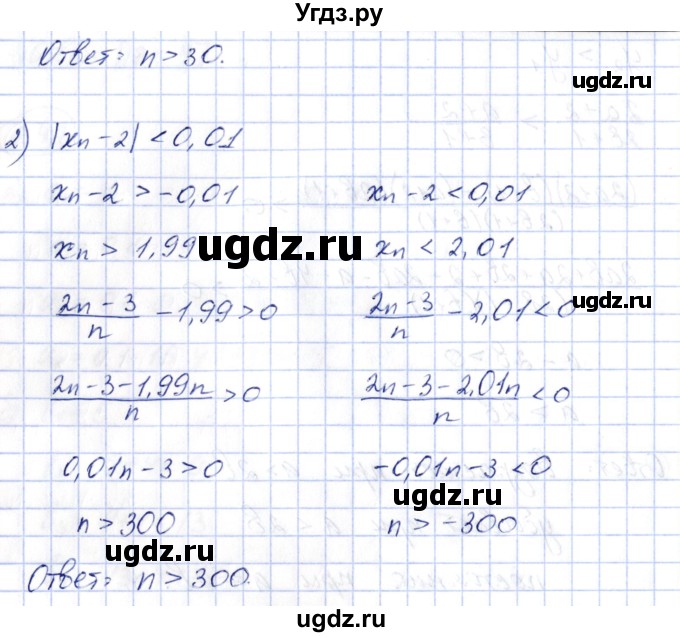 Угдз.ру
Ответ: n > 30.
ugdz.ru
2) |xₙ - 2| < 0,01
ugdz.ru
xₙ - 2 > -0,01    xₙ - 2 < 0,01
ugdz.ru
xₙ > 1,99    xₙ < 2,01
ugdz.ru
(2n - 3)/n - 1,99 > 0    (2n - 3)/n - 2,01 < 0
ugdz.ru
(2n - 3 - 1,99n)/n > 0    (2n - 3 - 2,01n)/n < 0
0,01n - 3 > 0    -0,01n - 3 < 0
ugdz.ru
n > 300    n > -300
ugdz.ru
Ответ: n > 300.
ugdz.ru